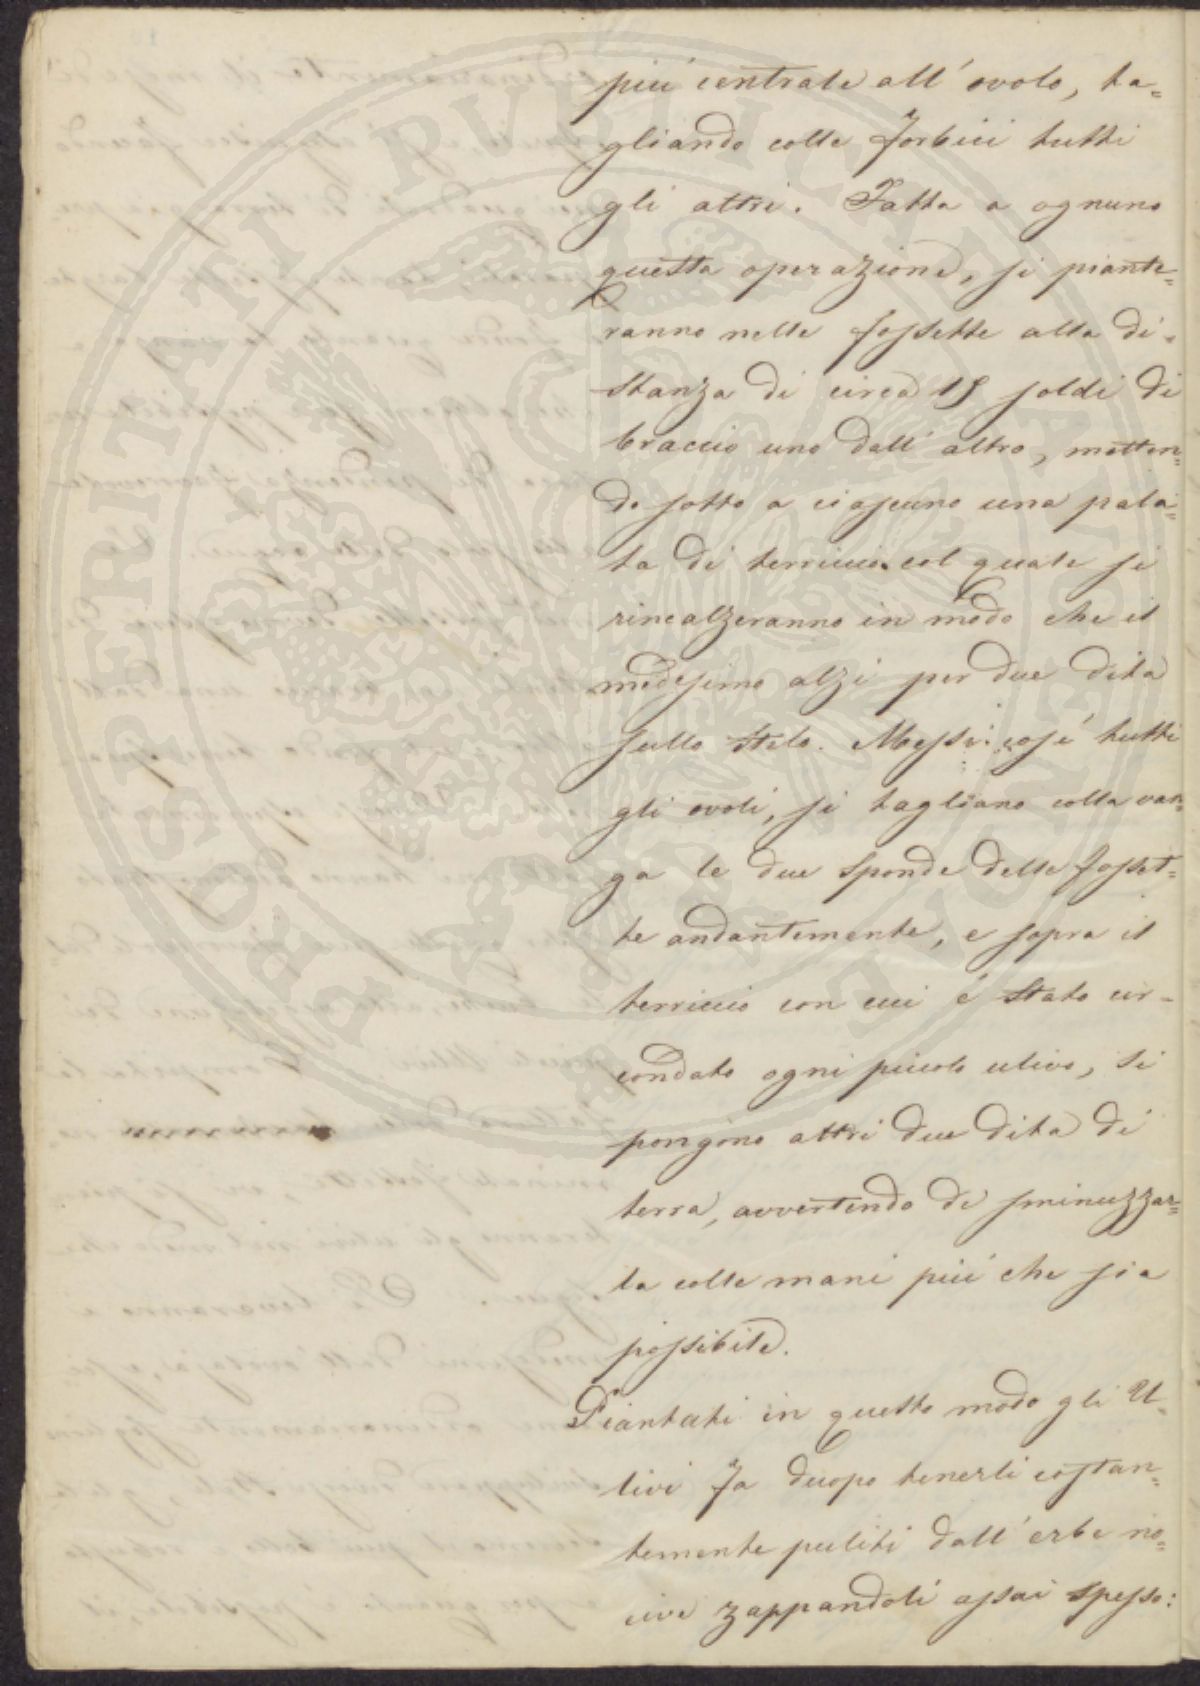 più centrale all'ovolo, ta=
gliando colle forbici tutti
gli altri. Fatta a ognuno
questa operazione, si piante=
ranno nelle fossette alla di=
stanza di circa 15 soldi di
braccio uno dall'altro, metten=
do sotto a ciascuno una pala=
ta di terriccio col quale si
rincalzeranno in modo che il
medesimo alzi per due dita
sullo stelo. Messi così tutti
gli ovoli, si tagliano colla van=
ga le due sponde delle fosset=
te andantemente, e sopra il
terriccio con cui é stato cir=
condato ogni piccolo ulivo, si
pongono altri due dita di
terra, avvertendo di sminuzzar=
la colle mani più che sia
possibile.
Piantati in questo modo gli U=
livi fa duopo tenerli costan=
temente puliti dall'erbe no=
cive zappandoli assai spesso:
PROSPERITATI PUBLICAE AUGENDAE